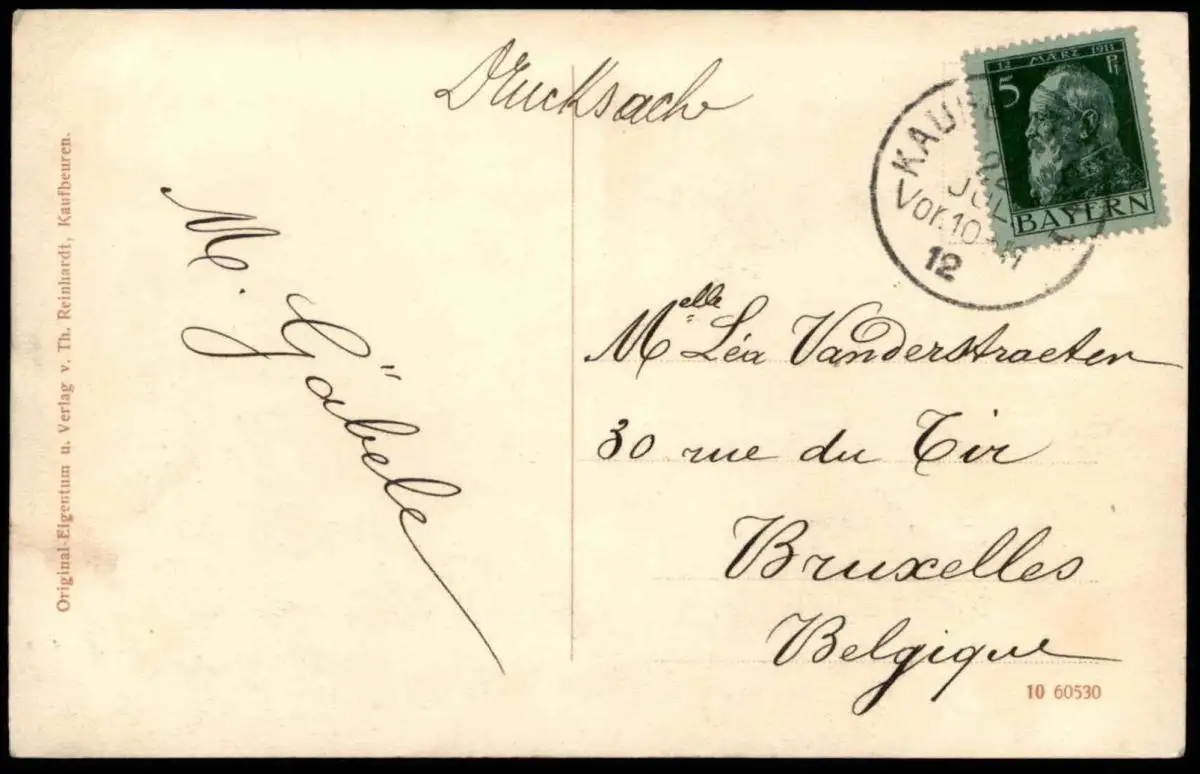 Drucksach
12 MÄRZ 1911
5 Pf
BAYERN
JUL
Vor. 10-11
12
Original-Eigentum u. Verlag v. Th. Reinhardt, Kaufbeuren.
M. Gäbele
Melle Léa Vanderstraeten
30 rue du Tir
Bruxelles
Belgique
10 60530